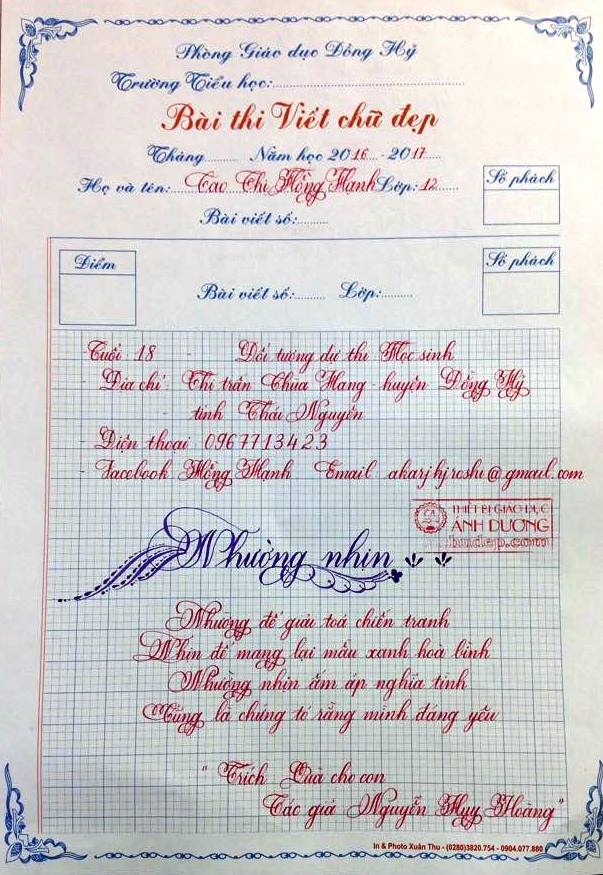 Phòng Giáo dục Đồng Hỷ
Trường Tiểu học:
Bài thi Viết chữ đẹp
Tháng Năm học 2016 - 2017
Họ và tên: Cao Thị Hồng Hạnh Lớp: 12
Số phách
Bài viết số:
Điểm
Bài viết số: Lớp:
Số phách
Tuổi : 18 - Đối tượng dự thi Học sinh
- Địa chỉ : Thị trấn Chùa Hang - huyện Đồng Hỷ
- tỉnh Thái Nguyên
- Điện thoại 0967713423
- Facebook Hồng Hạnh Email akarjhjroshi@gmail.com
THIẾT BỊ GIÁO DỤC
ÁNH DƯƠNG
Nhường nhịn
Nhường để giải toả chiến tranh
Nhịn để mang lại mầu xanh hoà bình
Nhường nhịn ấm áp nghĩa tình
Cũng là chứng tỏ rằng mình đáng yêu
" Trích : Quà cho con
Tác giả Nguyễn Huy Hoàng"
In & Photo Xuân Thu - (0280)3820.754 - 0904.077.880